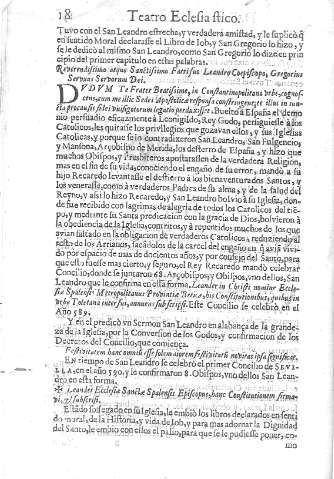 18 Teatro Eclesiastico.
Tuvo con el San Leandro estrecha, y verdadera amistad, y le suplicò q̃
en sentido Moral declarasse el Libro de Iob, y San Gregorio lo hizo, y
se le dedicò al mismo San Leandro, como San Gregorio lo dize en prin
cipio del primer capitulo en estas palabras.
Reverendissimo atque Sanctissimo Fratri suo Leandro Coepiscopo, Gregorius
Servus Servorum Dei.
DVDVM Te Frater Beatissime, in Constantinopolitana vrbe cognos-
cens, cum me illic Sedis Apostolicæ responsa constringerent, & te illuc in iun-
cta pro causis fidei Vvisigothorum legatio perduxisset. Buelto à España el demo
nio persuadio eficazmente à Leonigildo, Rey Godo, persiguiesse à los
Catolicos, les quitasse los privilegios que gozavan ellos, y sus Iglesias
Catolicas, y porque se lo contradixeron San Leandro, San Fulgencio,
y Mansona, Arçobispo de Merida, los desterrò de España, y hizo que
muchos Obispos, y Presbiteros apostatassen de la verdadera Religion,
mas en el fin de su vida, conociendo el engaño de su error, mandò a su
hijo Recaredo levantasse el destierro à los bienaventurados Santos, y
los venerasse, como à verdaderos Padres de su alma, y de la salud del
Reyno, y assi lo hizo Recaredo, y San Leandro bolviò à su Iglesia, don-
de fue recibido con lagrimas de alegria de todos los Catolicos del tiẽ-
po, y mediante su Santa predicacion con la gracia de Dios, bolvieron à
la obediencia de la Iglesia, contritos, y arrepentidos muchos de los que
avian faltado en la obligacion de verdaderos Catolicos, reduziendo al
resto de los Arrianos, sacandolos de la carcel del engaño en q̃ avia vivi-
do por espacio de mas de docientos años, y por consejo del Santo, para
que esto fuesse mas cierto, y seguro, el Rey Recaredo mandò celebrar
Concilio, donde se juntaron 68. Arçobispos, y Obispos, vno dellos, San
Leandro que le confirma en esta forma. Leander in Christi nomine Eccle
siæ Spalensis Metropolitanus Provintiæ Beticæ, his Constitutionibus, quibus in
vrbe Toletana interfui, annuens subscripsi. Este Concilio se celebrò en el
Año 589.
Y en èl predicò vn Sermon San Leandro en alabança de la grande-
za de la Iglesia, por la Conversion de los Godos, y confirmacion de los
Decretos del Concilio, que comiença.
Festivitatem hanc omnium esse solemniorem festivitatum novitas ipsa significat.
En tiempo de San Leandro se celebrò el primer Concilio de SEVI-
LLA, en el año 590. y le confirmaron 8. Obispos, vno dellos San Lean-
dro en esta forma.
Leander Ecclesiæ Sanctæ Spalensis Episcopus, hanc Constitutionem firma-
vi, & subscripsi.
Estando sosegado en su Iglesia, le embiò los libros declarados en senti
do moral, de la Historia, y vida de Iob, y para mas adornar la Dignidad
del Santo, le embiò con ellos el palio, para que se le pudiesse poner, co-
mo